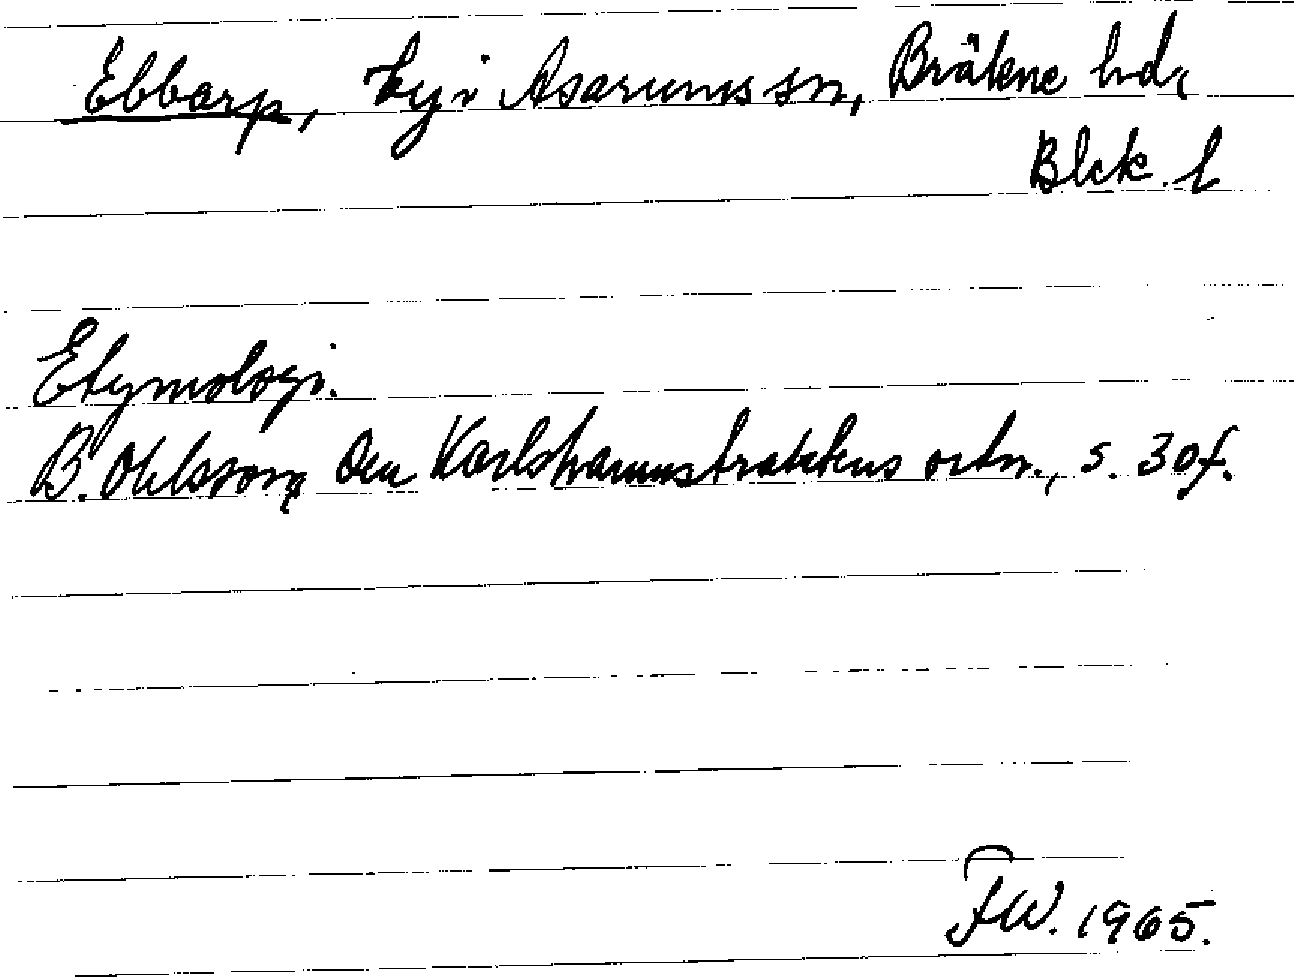 Ebbarp, by i Asarums sn, Bräkne hd,
Blek. l
Etymologi.
B. Ohlsson, Den Karlshamnstraktens ortn., s. 30f.
FW. 1965.